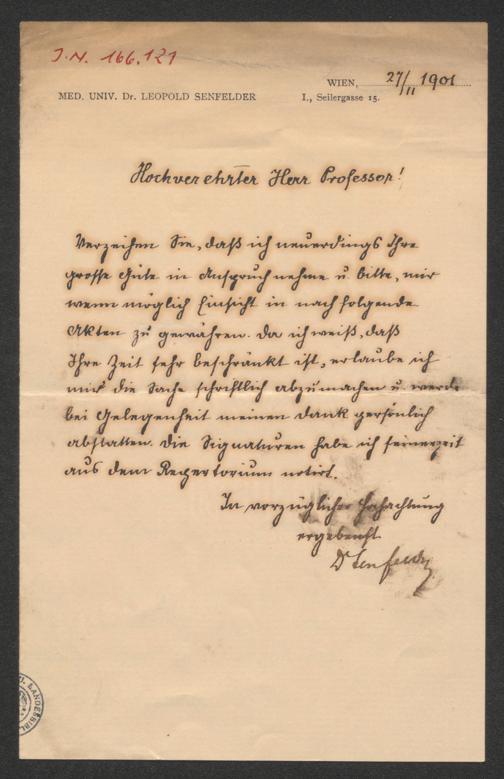 J.N. 166.121
WIEN, 27/II 1901
MED. UNIV. Dr. LEOPOLD SENFELDER
I., Seilergasse 15.
Hochverehrter Herr Professor!
Verzeihen Sie, daß ich neuerdings Ihre
grosse Güte in Anspruch nehme u. bitte, mir
wenn möglich Einsicht in nachfolgende
Akten zu gewähren. Da ich weiß, daß
Ihre Zeit sehr beschränkt ist, erlaube ich
mir die Sache schriftlich abzumachen u. werde
bei Gelegenheit meinen Dank persönlich
abstatten. Die Signaturen habe ich seinerzeit
aus dem Repertorium notirt.
In vorzüglicher Hochachtung
ergebenst
Dr Senfelder
LANDESBIBL